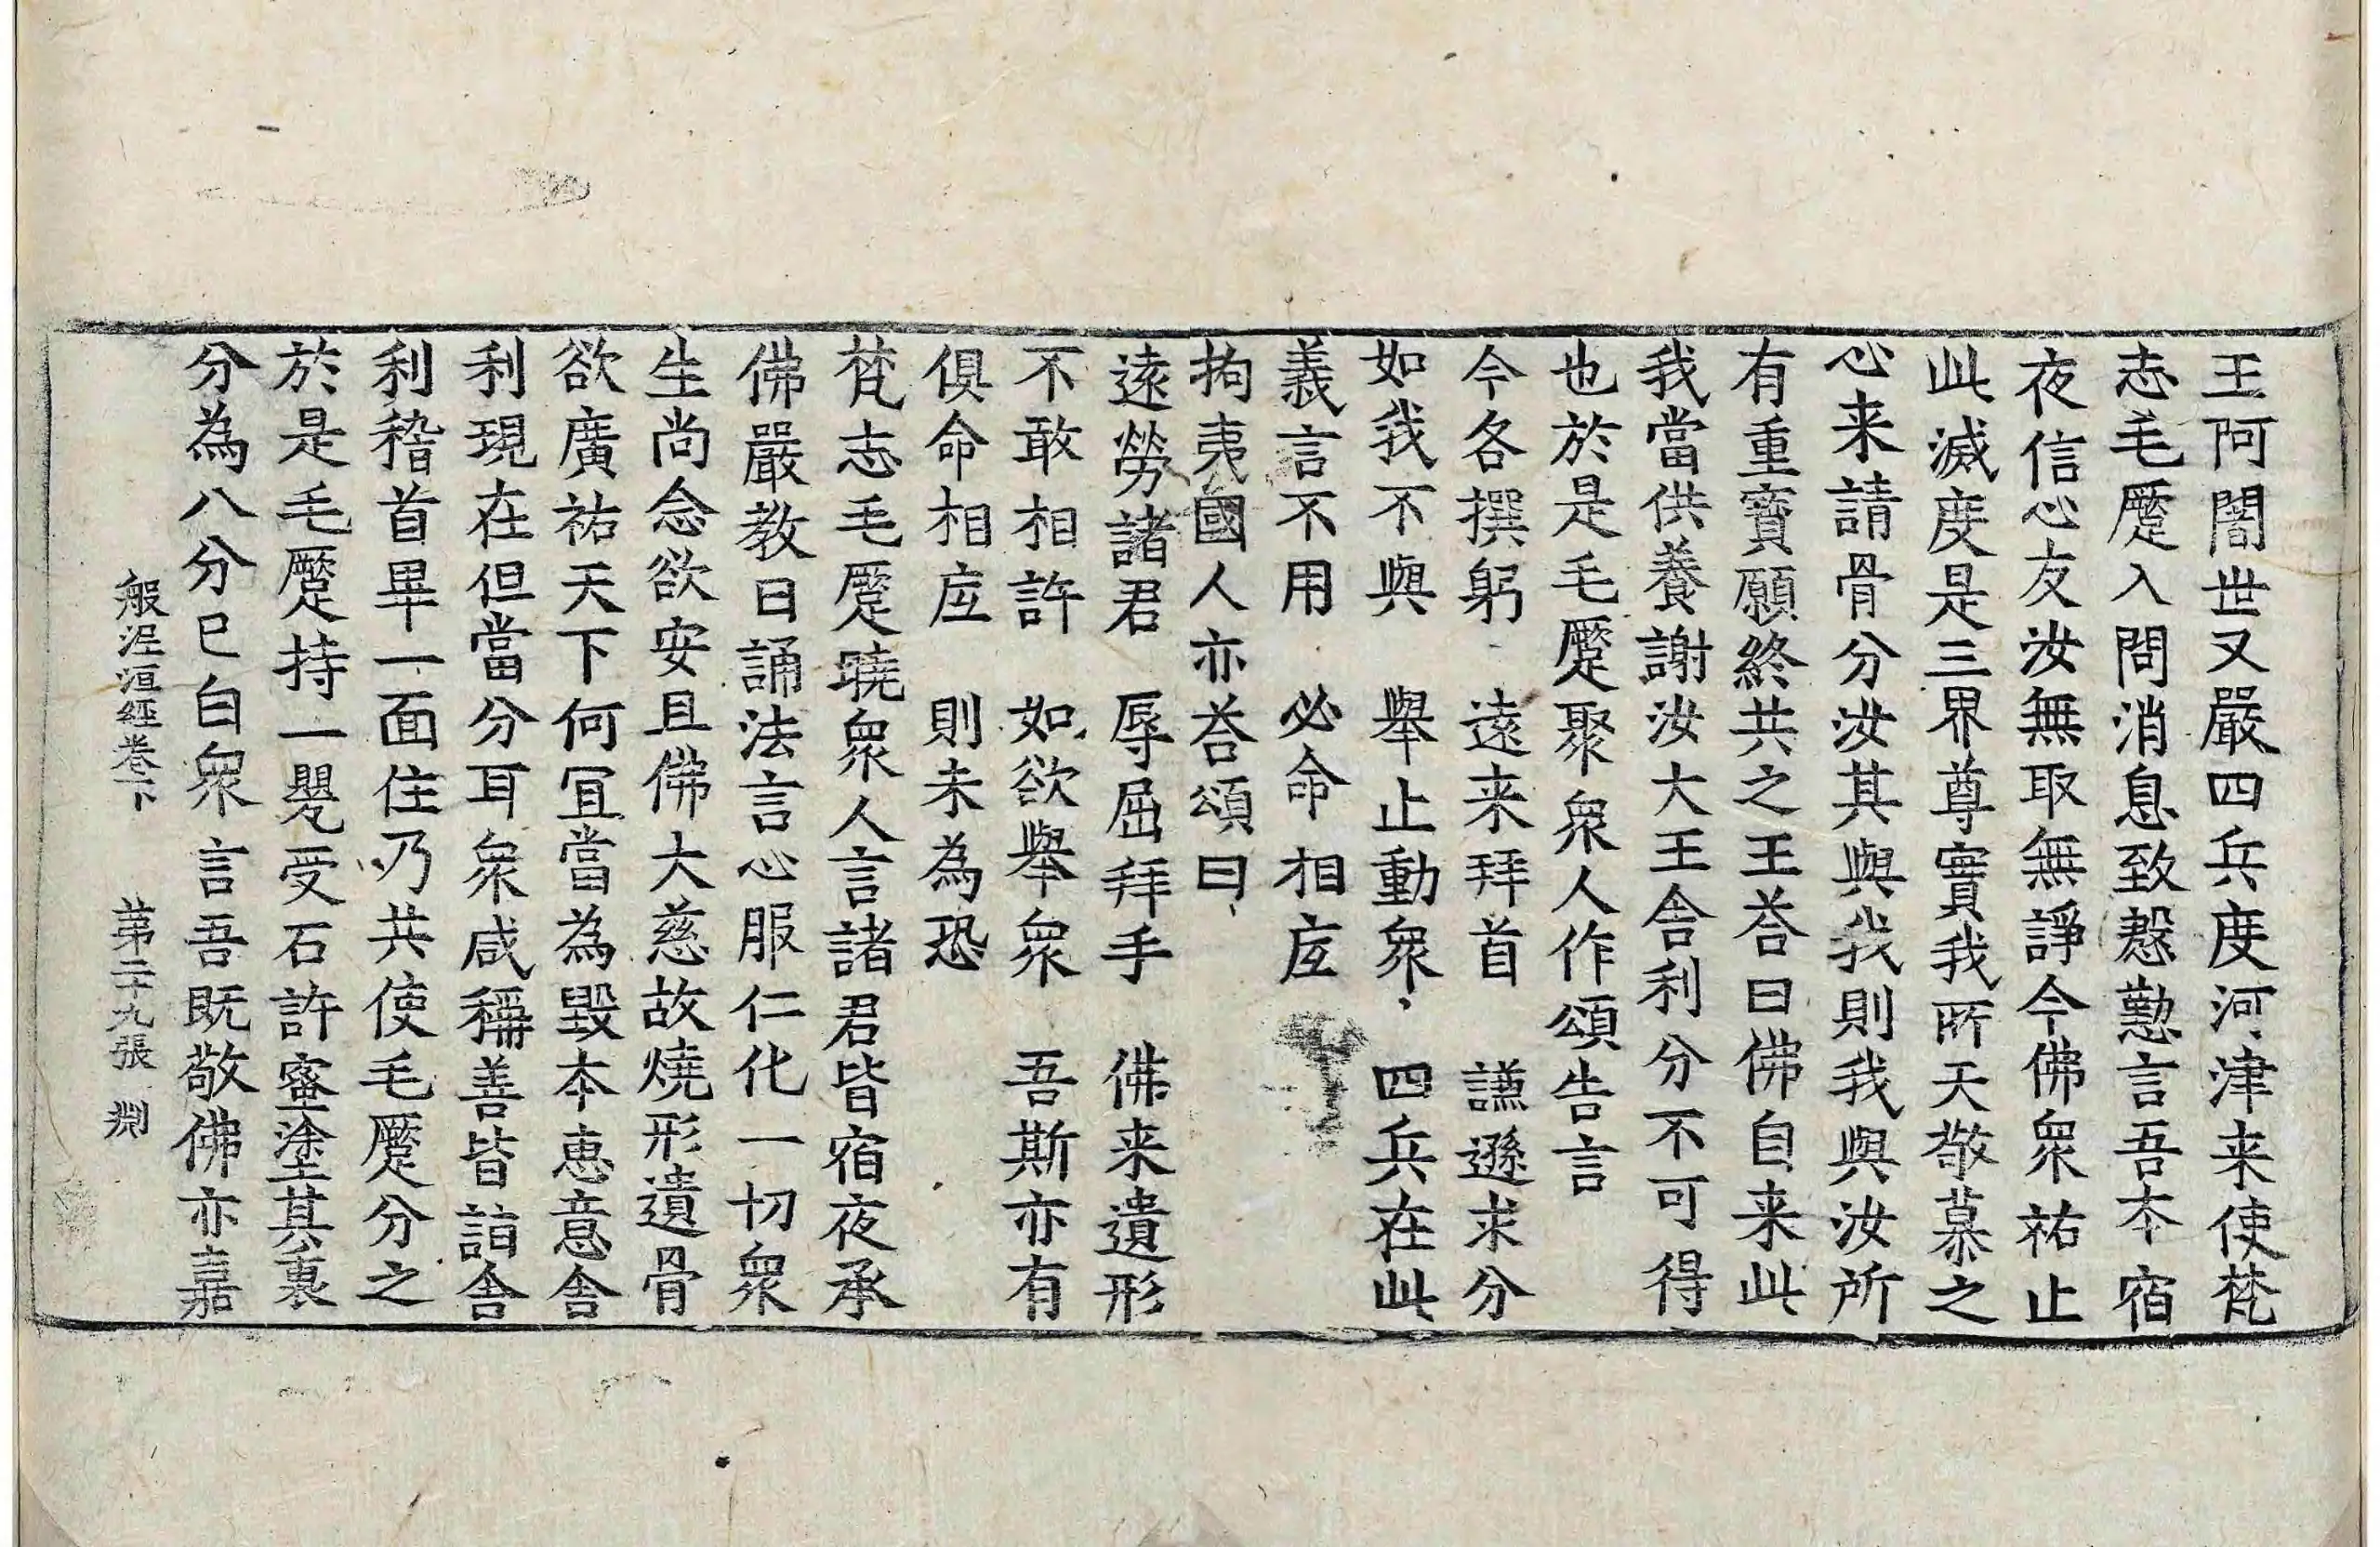 王阿闍世又嚴四兵度河津来使梵
志毛蹷入問消息致慇懃言吾本宿
夜信心友汝無取無諍今佛衆祐止
此滅度是三界尊實我所天敬慕之
心来請骨分汝其與我則我與汝所
有重寶願終共之王荅曰佛自来此
我當供養謝汝大王舍利分不可得
也於是毛蹷聚衆人作頌告言
今各撰躬　遠来拜首　謙遜求分
如我不與　舉止動衆　四兵在此
義言不用　必命相𠩄
拘夷國人亦荅頌曰
遠勞諸君　辱屈拜手　佛来遺形
不敢相許　如欲舉衆　吾斯亦有
俱命相𠩄　則未為恐
梵志毛蹷曉衆人言諸君皆宿夜承
佛嚴教日誦法言心服仁化一切衆
生尚念欲安且佛大慈故燒形遺骨
欲廣祐天下何冝當為毀本惠意舍
利現在但當分耳衆咸稱善皆詣舍
利稽首畢一面住乃共使毛蹷分之
於是毛蹷持一甖受石許蜜塗其裏
分為八分已白衆言吾既敬佛亦嘉
般泥洹經卷下　第二十九張　渕